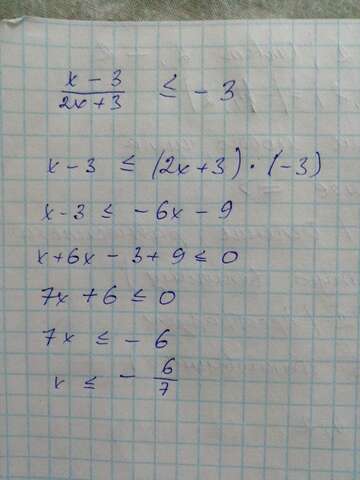 x - 3 / 2x + 3 ≤ - 3
x - 3 ≤ (2x + 3) · (-3)
x - 3 ≤ - 6x - 9
x + 6x - 3 + 9 ≤ 0
7x + 6 ≤ 0
7x ≤ - 6
x ≤ - 6/7